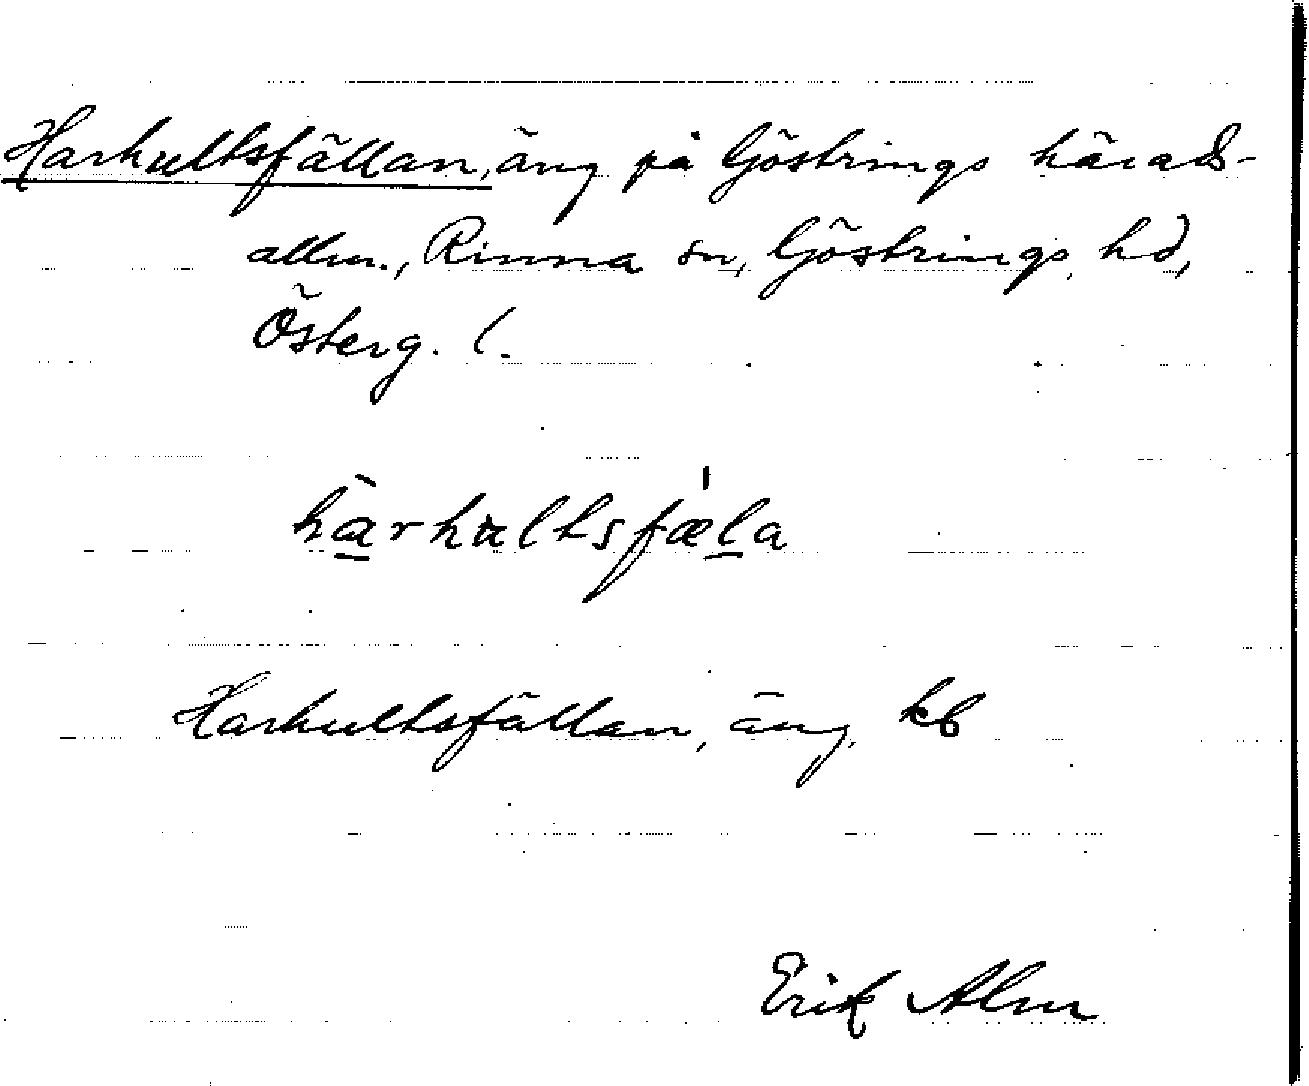 Harhultsfällan, äng på Göstrings härads-
allm., Rinna sn, Göstrings hd,
Österg. l.
hàrhultsfæ̍la
Harhultsfällan, äng, kb
Erik Alm